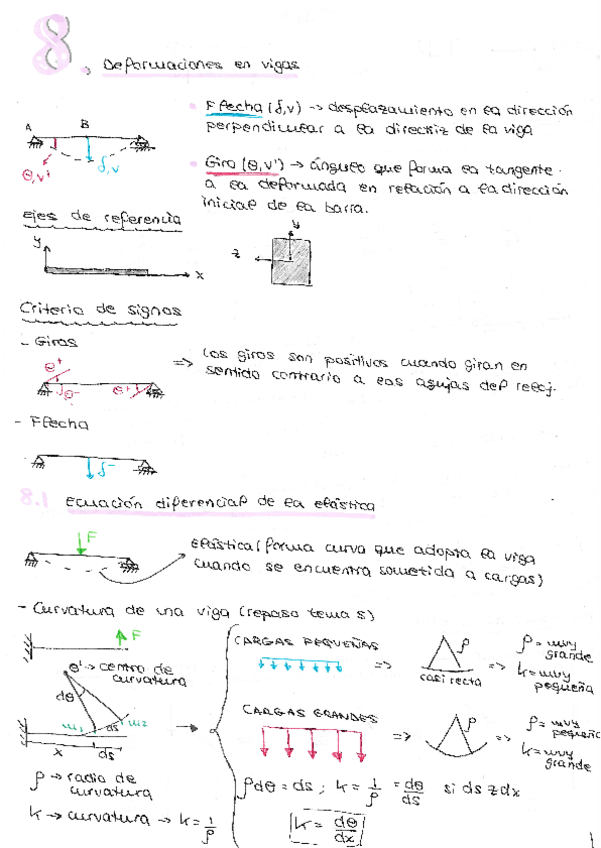 8. Deformaciones en vigas
Flecha (δ,v) -> desplazamiento en la dirección
perpendicular a la directriz de la viga
A B
θ,v' δ,v
Giro (θ,v') -> ángulo que forma la tangente
a la deformada en relación a la dirección
inicial de la barra.
ejes de referencia
y x
y z
Criterio de signos
- Giros
θ+ θ- θ+
=> los giros son positivos cuando giran en
sentido contrario a las agujas del reloj.
- Flecha
δ-
8.1 Ecuación diferencial de la elástica
F
elástica (forma curva que adopta la viga
cuando se encuentra sometida a cargas)
- Curvatura de una viga (repaso tema 5)
F
O' -> centro de
curvatura
dθ
m1 ds m2
x ds
ρ -> radio de
curvatura
k -> curvatura -> k = 1/ρ
CARGAS PEQUEÑAS => ρ casi recta => ρ = muy grande
k = muy pequeña
CARGAS GRANDES => ρ => ρ = muy pequeño
k = muy grande
ρdθ = ds ; k = 1/ρ = dθ/ds si ds ≈ dx
k = dθ/dx